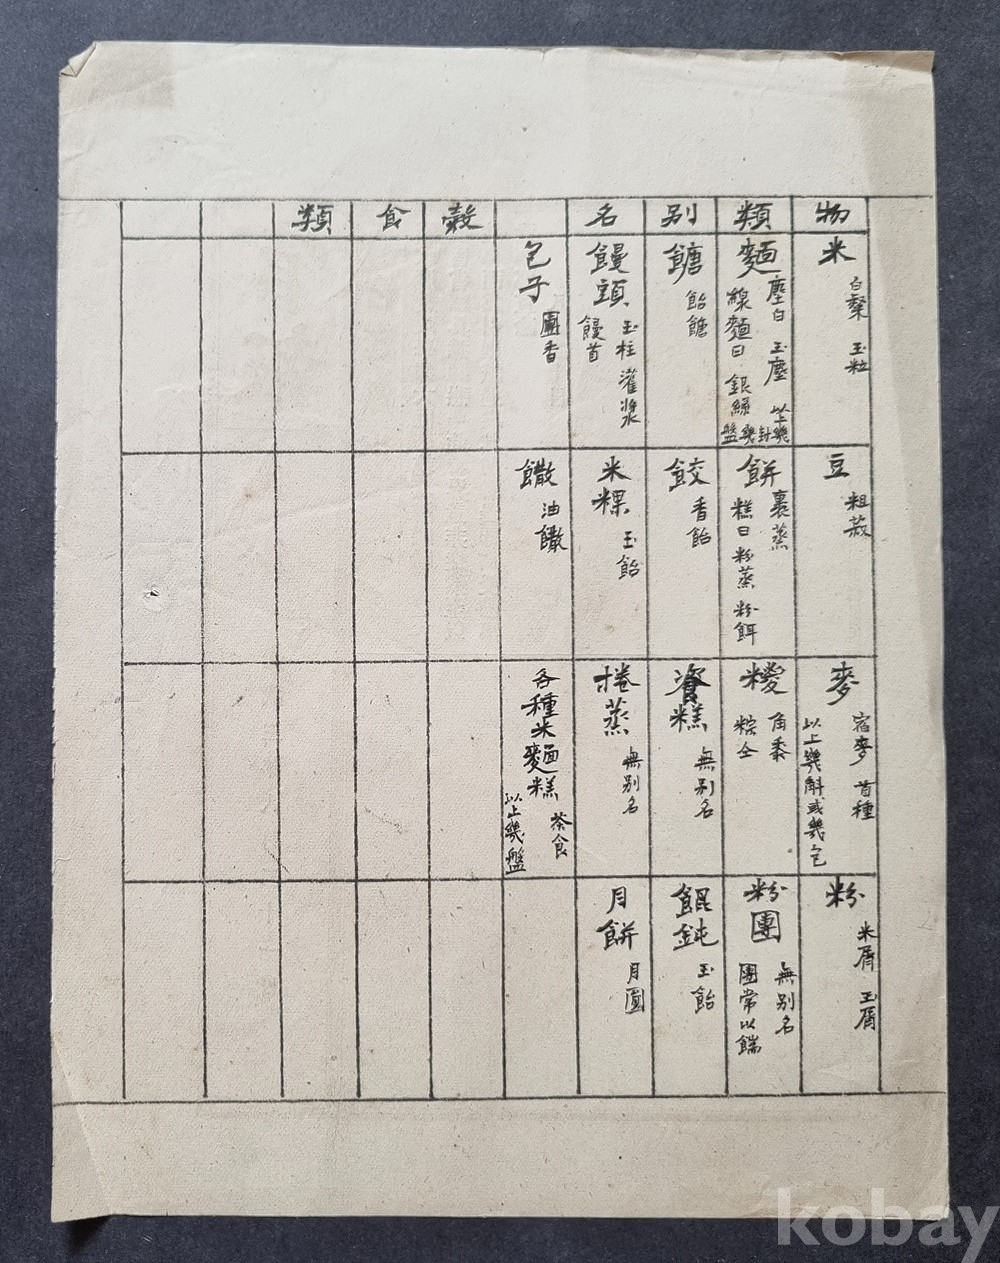 物類別名 穀食類
米 白粲 玉粒
豆 粗菽
麥 宿麥 首種 以上幾斛或幾包
粉 米屑 玉屑
麵 塵白 玉塵 線麵曰 銀絲 以上幾封幾盤
餅 裹蒸 糕曰 粉蒸 粉餌
糭 角黍 粽仝
粉團 無别名 團常以
餹 飴餹
餃 香飴
餈糕 無别名
餛飩 玉飴
饅頭 玉柱 灌漿 饅首
米粿 玉飴
捲蒸 無别名
月餅 月圓
包子 團香
饊 油饊
各種米麵糕 茶食 以上幾盤
kobay